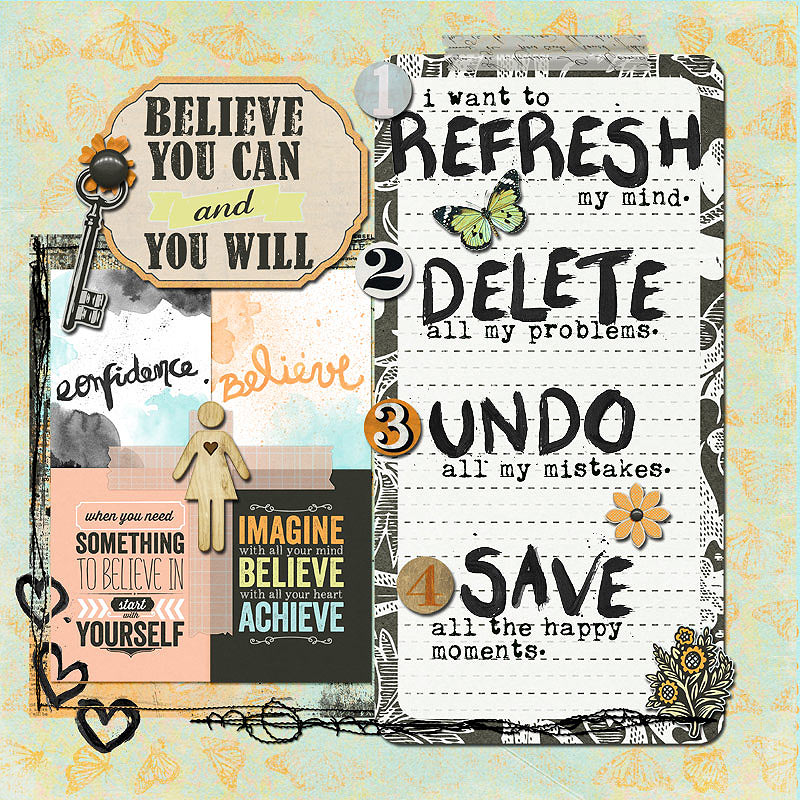 BELIEVE
YOU CAN
and
YOU WILL
confidence.
Believe
when you need
SOMETHING
TO BELIEVE IN
start
with
YOURSELF
IMAGINE
with all your mind
BELIEVE
with all your heart
ACHIEVE
1
i want to
REFRESH
my mind.
2
DELETE
all my problems.
3
UNDO
all my mistakes.
4
SAVE
all the happy
moments.